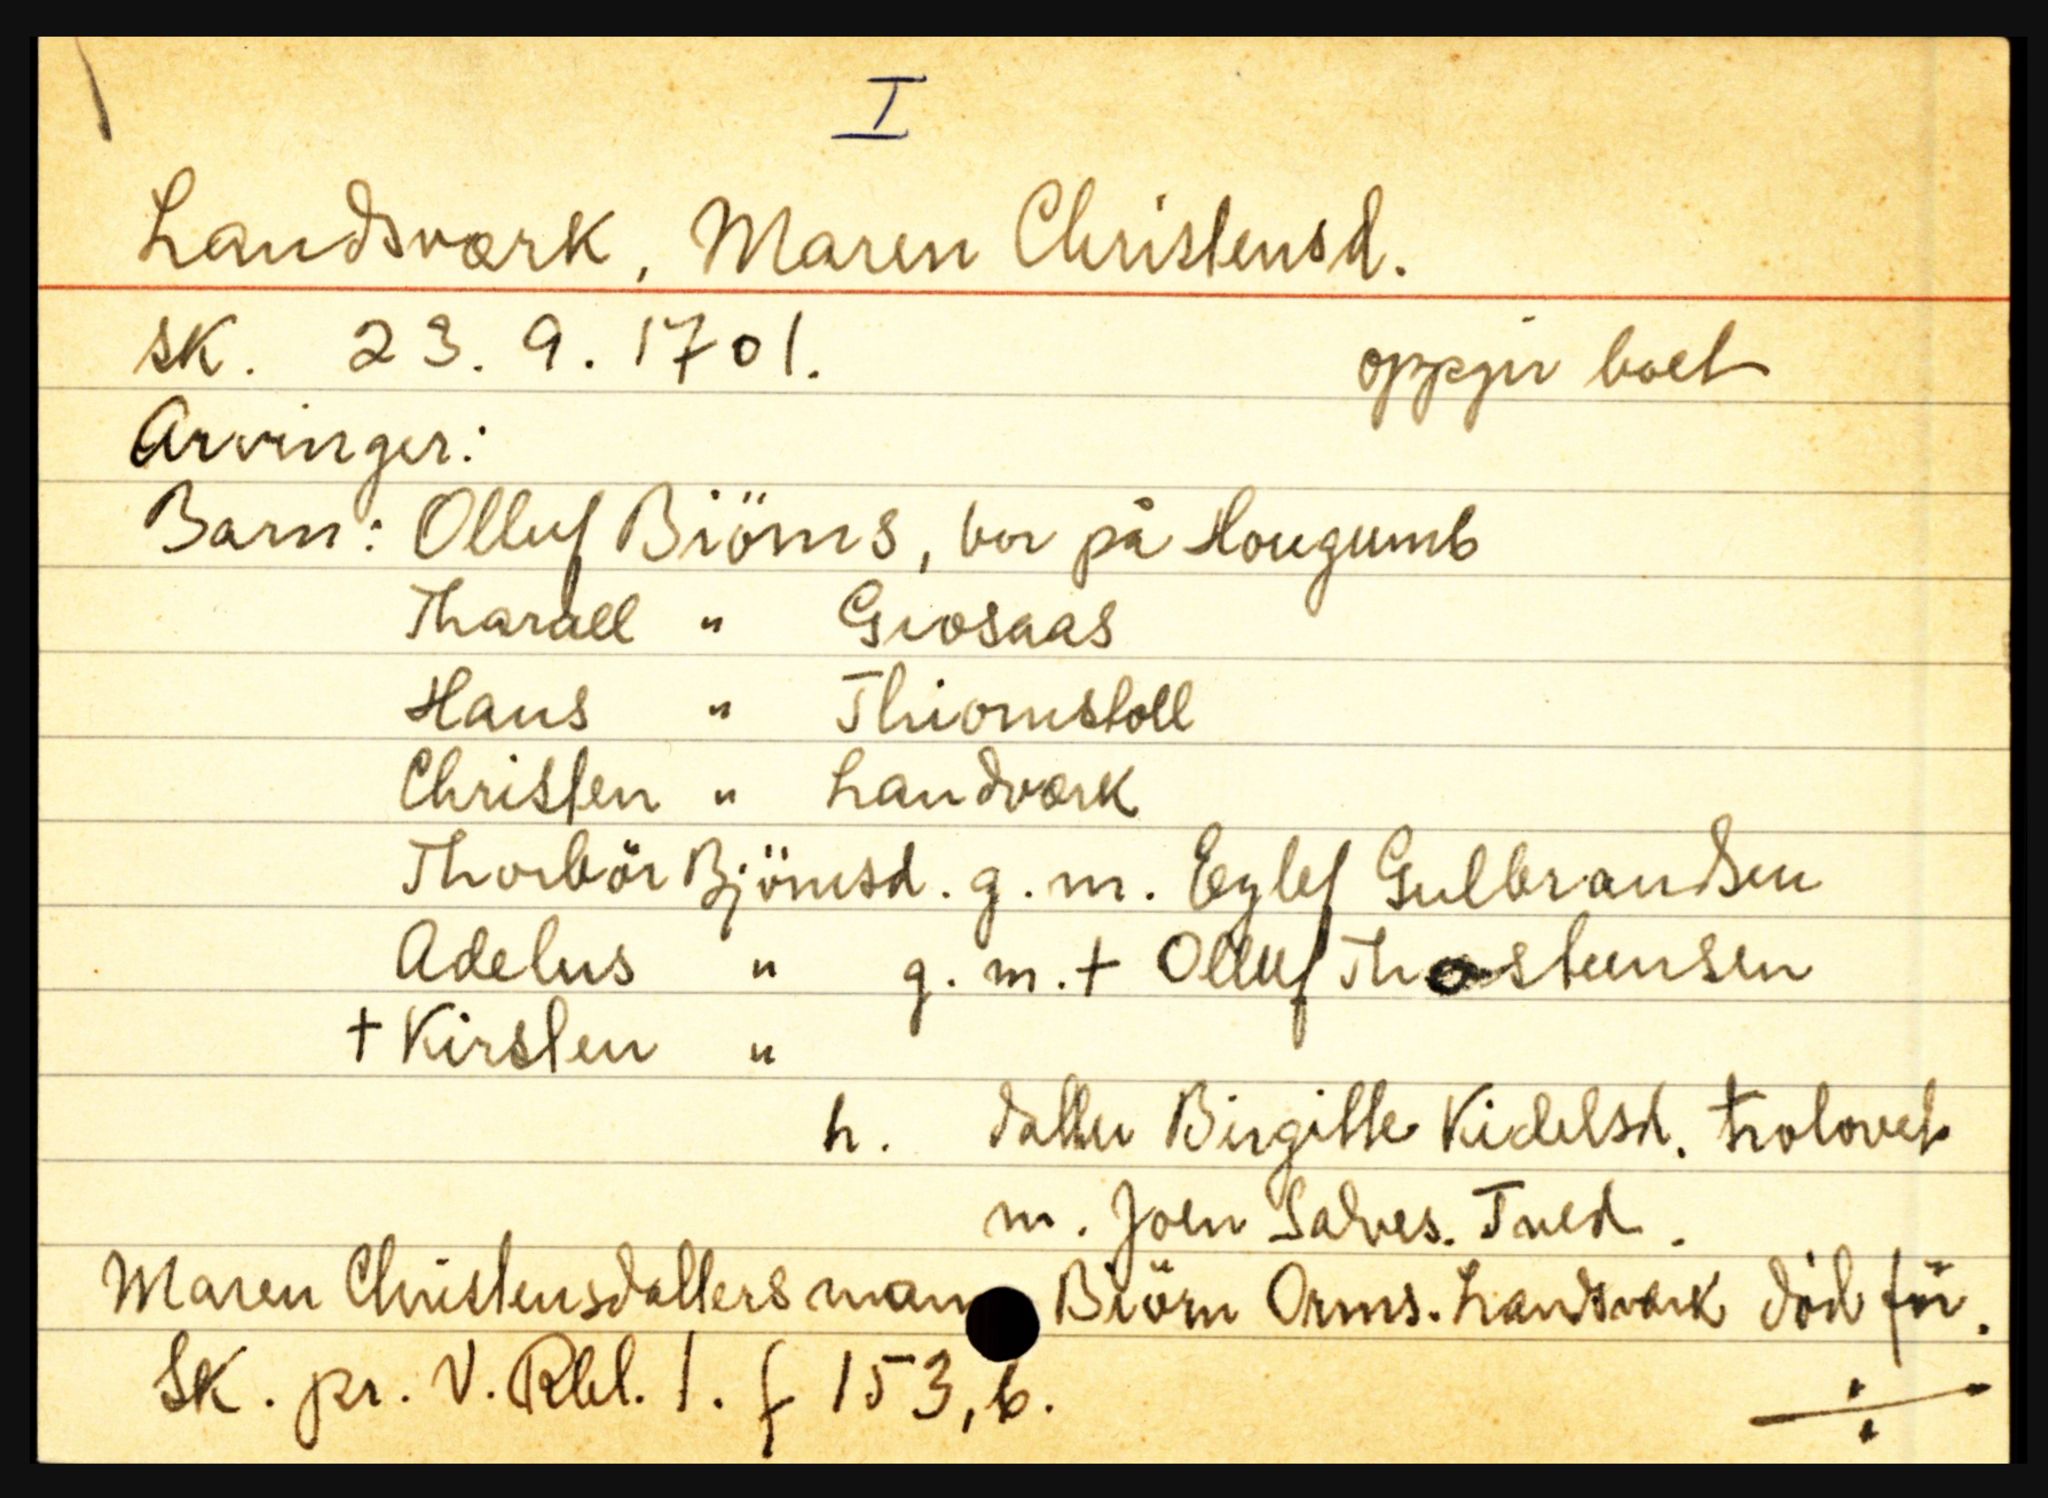 I
Landsværk, Maren Christensd.
sk. 23. 9. 1701. oppgir boet
Arvinger:
Barn: Olluf Biörns, bor på Hougumb
Tharall " Grosaas
Hans " Thiomstoll
Christen " Landværk
Thorbör Björnsd. g. m. Eylef Gulbrandsen
Adelus " g. m. + Olluf Thosteensen
+ Kirsten "
h. datter Birgitte Kidelsd. trolovet
m. Joen Salves. Tved.
Maren Christensdatters mann Biörn Orms. Landsværk död för.
Sk. pr. V. Rbl. 1. f 153, b.
÷